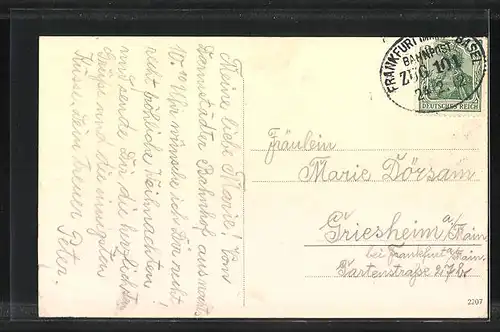 Meine liebe Marie! Vom
Darmstädter Bahnhof aus nachts
10.30 Uhr wünsche ich Dir recht
recht fröhliche Weihnachten
und sende Dir die herzlichsten
Grüße und die innigsten
Küsse, Dein treuer Peter.
FRANKFURT (MAIN) BASEL
BAHNPOST
ZUG 101
24.12.
DEUTSCHES REICH
Fräulein
Marie Dörsam
Griesheim a/Main
bei Frankfurt a/Main,
Gartenstraße
2207